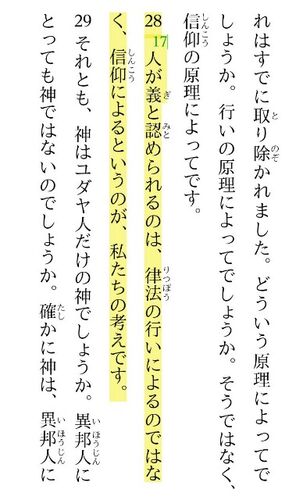 れはすでに取り除かれました。どういう原理によってで
しょうか。行いの原理によってでしょうか。そうではなく、
信仰の原理によってです。
28 17 人が義と認められるのは、律法の行いによるのではな
く、信仰によるというのが、私たちの考えです。
29 それとも、神はユダヤ人だけの神でしょうか。異邦人に
とっても神ではないのでしょうか。確かに神は、異邦人に